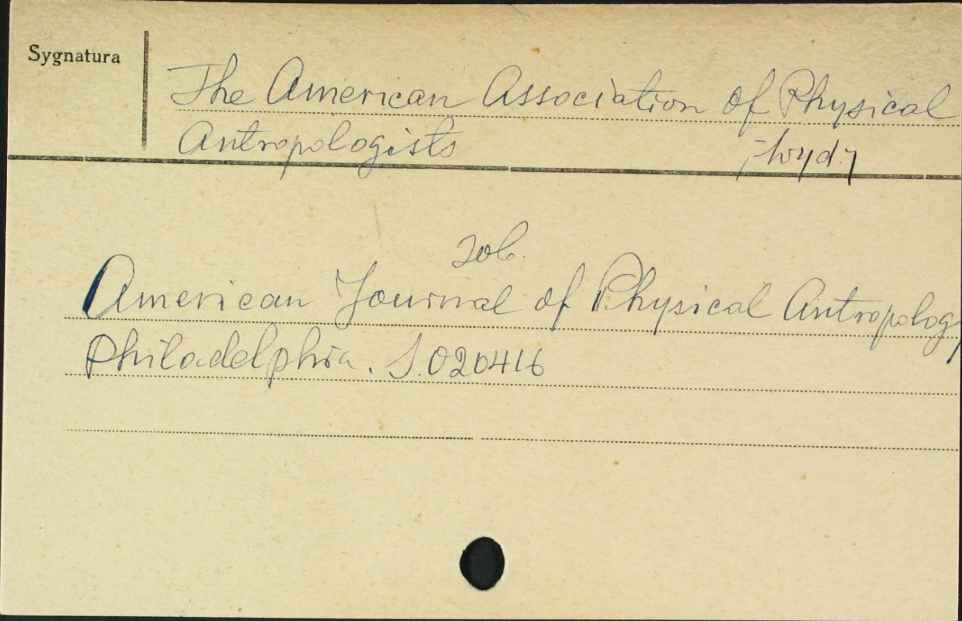 Sygnatura
The American Association of Physical
Antropologists /wyd./
zob.
American Journal of Physical Antropology
Philadelphia. S.020416